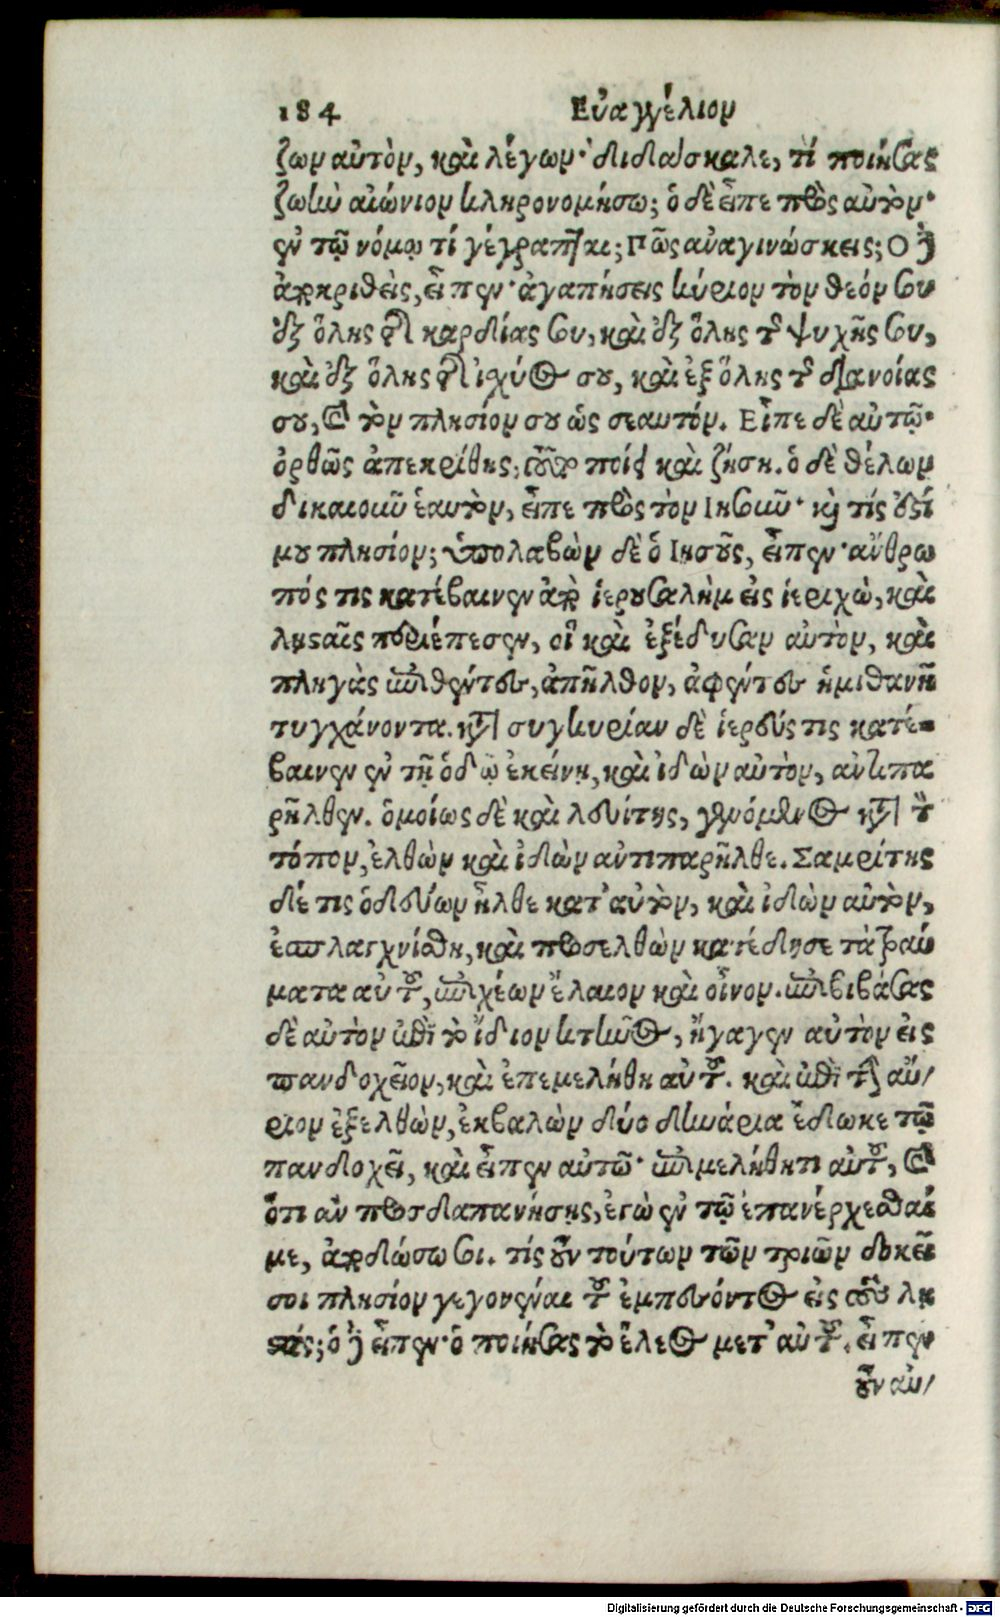 184 Εὐαγγέλιον
ζων αὐτὸν, καὶ λέγων· διδάσκαλε, τί ποιήσας
ζωὴν αἰώνιον κληρονομήσω; ὁ δὲ εἶπε πρὸς αὐτὸν·
ἐν τῷ νόμῳ τί γέγραπται; Πῶς ἀναγινώσκεις; Ο δὲ
ἀποκριθεὶς, εἶπεν· ἀγαπήσεις κύριον τὸν θεόν σου
ἐξ ὅλης τῆς καρδίας σου, καὶ ἐξ ὅλης τῆς ψυχῆς σου,
καὶ ἐξ ὅλης τῆς ἰσχύος σου, καὶ ἐξ ὅλης τῆς διανοίας
σου, καὶ τὸν πλησίον σου ὡς σεαυτόν. Εἶπε δὲ αὐτῷ·
ὀρθῶς ἀπεκρίθης, τοῦτο ποίει καὶ ζήσῃ. ὁ δὲ θέλων
δικαιοῦν ἑαυτὸν, εἶπε πρὸς τὸν Ιησοῦν· καὶ τίς ἐστί
μου πλησίον; ὑπολαβὼν δὲ ὁ Ιησοῦς, εἶπεν· ἄνθρω
πός τις κατέβαινεν ἀπὸ ἱερουσαλὴμ εἰς ἱεριχὼ, καὶ
λῃσταῖς περιέπεσεν, οἳ καὶ ἐξέδυσαν αὐτὸν, καὶ
πληγὰς ἐπιθέντες, ἀπῆλθον, ἀφέντες ἡμιθανῆ
τυγχάνοντα. κατὰ συγκυρίαν δὲ ἱερεύς τις κατέ-
βαινεν ἐν τῇ ὁδῷ ἐκείνῃ, καὶ ἰδὼν αὐτὸν, ἀντιπα
ρῆλθεν. ὁμοίως δὲ καὶ λευίτης, γενόμενος κατὰ τὸν
τόπον, ἐλθὼν καὶ ἰδὼν ἀντιπαρῆλθε. Σαμρίτης
δέ τις ὁδεύων ἦλθε κατ' αὐτὸν, καὶ ἰδὼν αὐτὸν,
ἐσπλαγχνίσθη, καὶ προσελθὼν κατέδησε τὰ τραύ
ματα αὐτοῦ, ἐπιχέων ἔλαιον καὶ οἶνον. ἐπιβιβάσας
δὲ αὐτὸν ἐπὶ τὸ ἴδιον κτῆνος, ἤγαγεν αὐτὸν εἰς
πανδοχεῖον, καὶ ἐπεμελήθη αὐτοῦ. καὶ ἐπὶ τὴν αὔ/
ριον ἐξελθὼν, ἐκβαλὼν δύο δηνάρια ἔδωκε τῷ
πανδοχεῖ, καὶ εἶπεν αὐτῷ· ἐπιμελήθητι αὐτοῦ, καὶ
ὅτι ἂν προσδαπανήσῃς, ἐγὼ ἐν τῷ ἐπανέρχεσθαί
με, ἀποδώσω σοι. τίς οὖν τούτων τῶν τριῶν δοκεῖ
σοι πλησίον γεγονέναι τοῦ ἐμπεσόντος εἰς τοὺς λῃ
στάς; ὁ δὲ εἶπεν· ὁ ποιήσας τὸ ἔλεος μετ' αὐτοῦ. εἶπεν
οὖν αὐ/
Digitalisierung gefördert durch die Deutsche Forschungsgemeinschaft - DFG